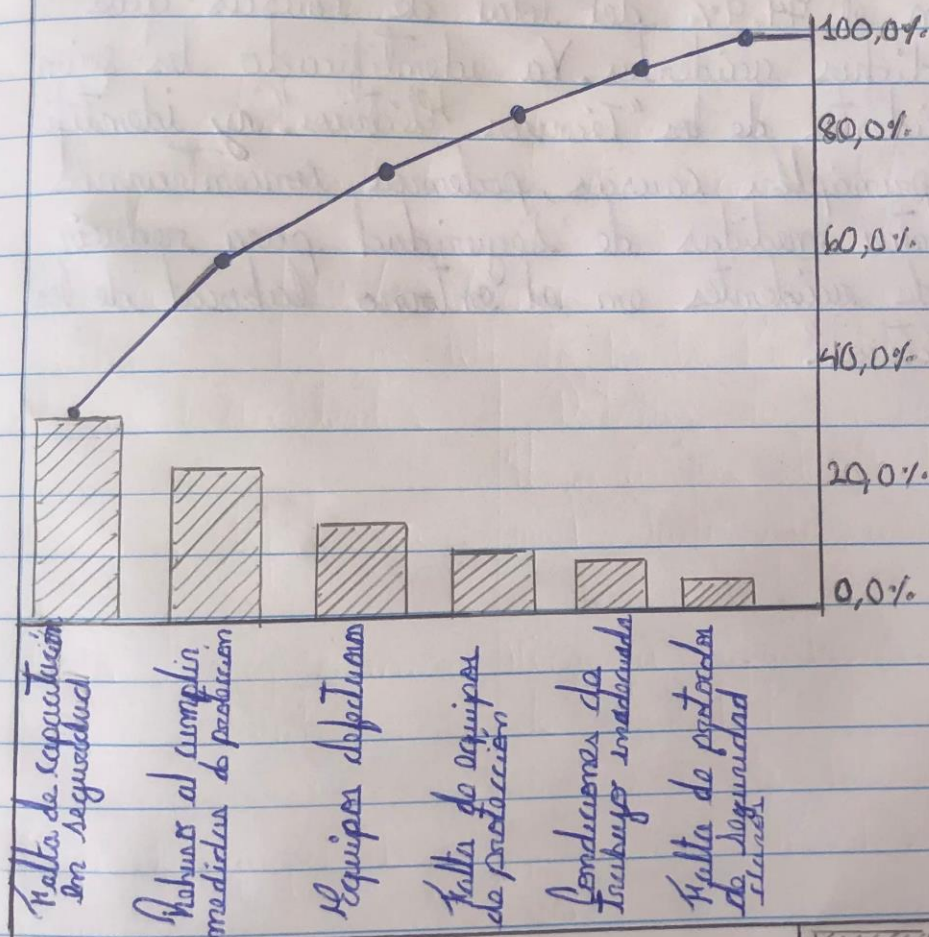 100,0%
80,0%
60,0%
40,0%
20,0%
0,0%
Falta de capacitación
en seguridad
Rehuso al cumplir
medidas de protección
Equipos defectuosos
Falta de equipos
de protección
Condiciones de
trabajo inadecuada
Falta de protocolos
de seguridad
claros